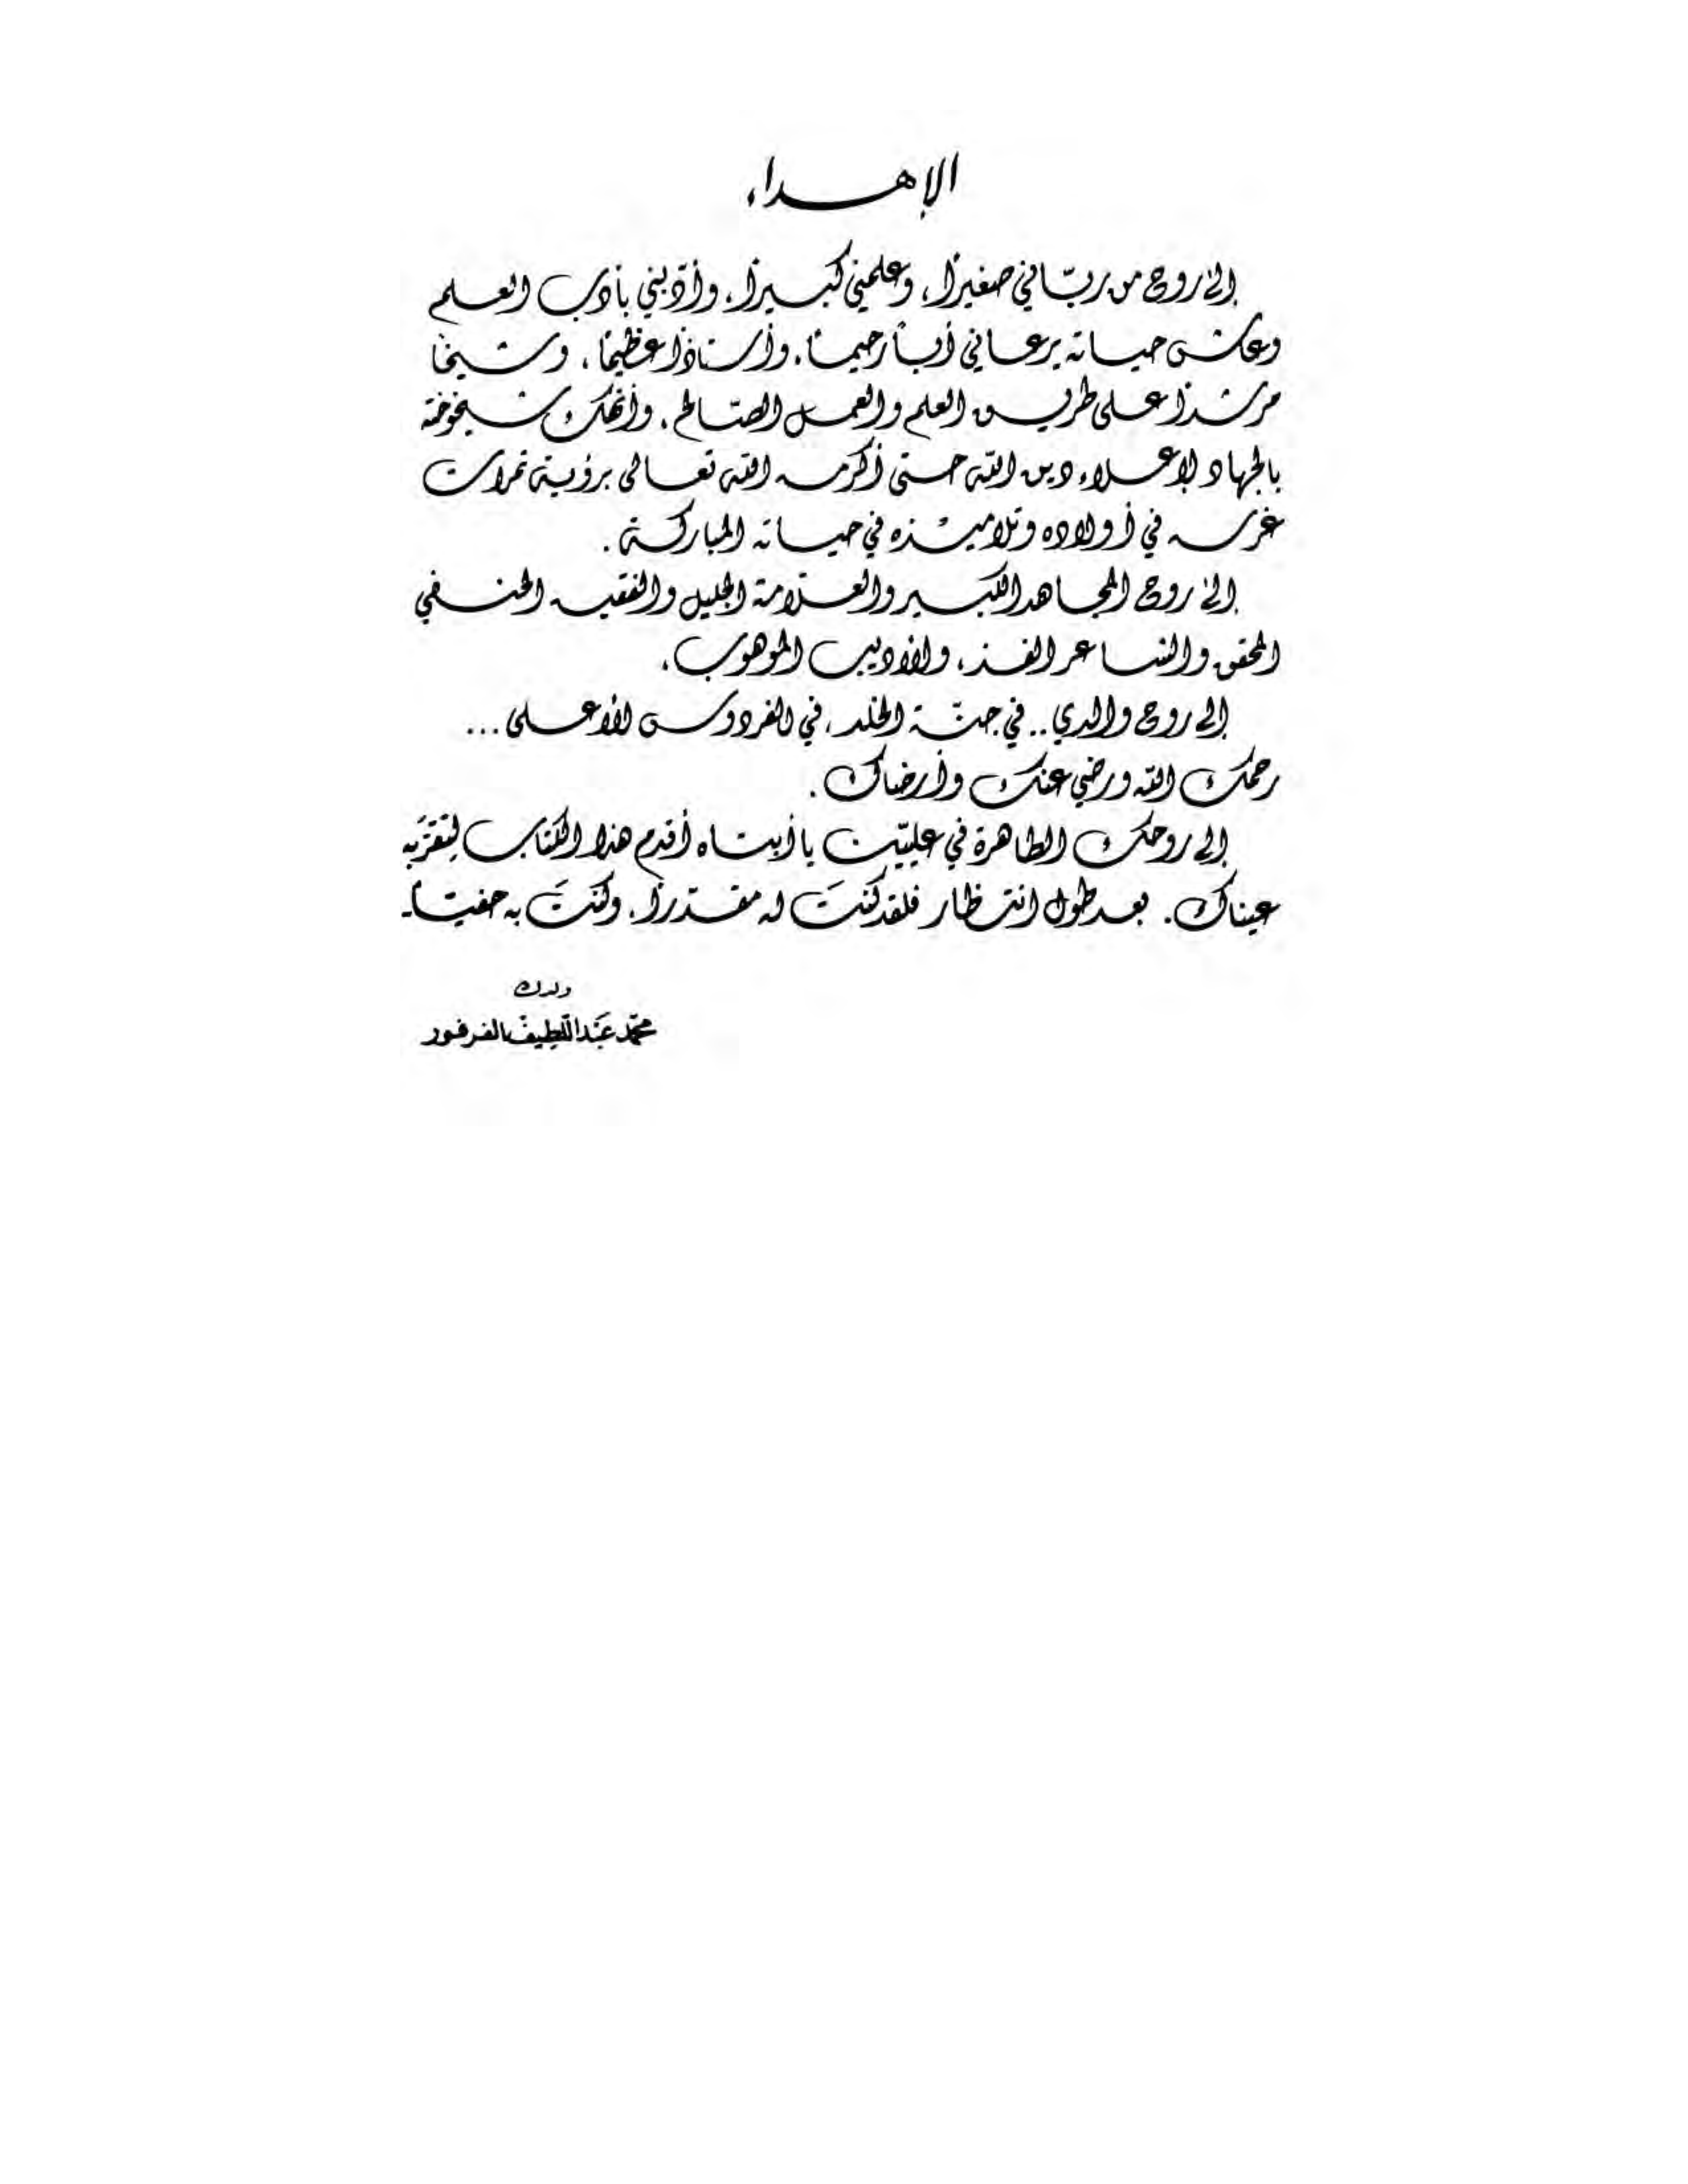 الإهداء
إلى روح من ربّاني صغيرًا، وعلمني كبيرًا، وأدّبني بأدب العلم
وعاش حياته يرعاني أبًا رحيمًا، وأستاذًا عظيمًا، وشيخًا
مرشدًا على طريق العلم والعمل الصّالح، وأنهك شيخوخته
بالجهاد لإعلاء دين الله حتى أكرمه الله تعالى برؤية ثمرات
غرسه في أولاده وتلاميذه في حياته المباركة.
إلى روح المجاهد الكبير والعلّامة الجليل والفقيه الحنفي
المحقق والشاعر الفذ، والأديب الموهوب،
إلى روح والدي.. في جنّة الخلد، في الفردوس الأعلى...
رحمك الله ورضي عنك وأرضاك.
إلى روحك الطاهرة في عليّين يا أبتاه أقدم هذا الكتاب لتقرَّ به
عيناك. بعد طول انتظار فلقد كنتَ له مقدّرًا، وكنتَ به حفيّاً.
ولدك
محمّد عَبْد اللّطيف الفرفور